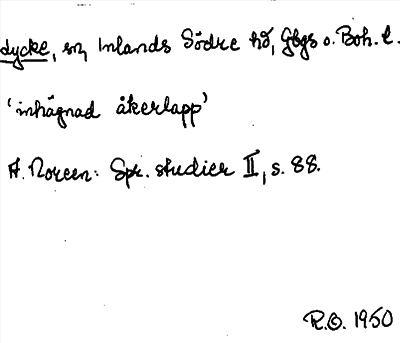 dycke, sn, Inlands Södre hd, Gbgs o. Boh. l.
'inhägnad åkerlapp'
A. Noreen: Spr. studier II, s. 88.
R.O. 1950